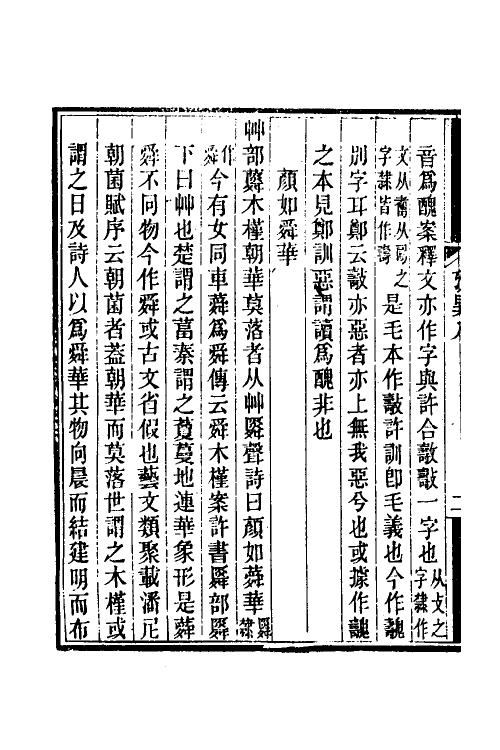 音爲醜案釋文亦作字與許合㪑㪑一字也从攴之字隸作
文从𠷎从殴之字隸皆作壽是毛本作㪑許訓卽毛義也今作魗
別字耳鄭云㪑亦惡者亦上無我惡兮也或據作魗
之本見鄭訓惡謂讀爲醜非也
顏如舜華
艸部蕣木槿朝華莫落者从艸䑞聲詩曰顏如蕣華䑞隸
作舜今有女同車蕣爲舜傳云舜木槿案許書䑞部䑞
下曰艸也楚謂之葍秦謂之藑蔓地連華象形是蕣
舜不同物今作舜或古文省假也藝文類聚載潘尼
朝菌賦序云朝菌者蓋朝華而莫落世謂之木槿或
謂之日及詩人以爲舜華其物向晨而結建明而布
二